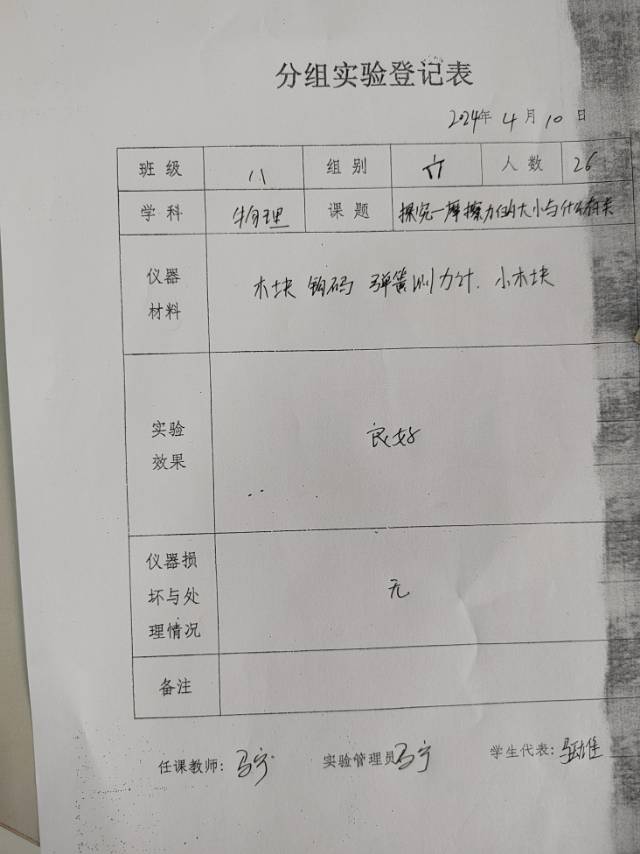 分组实验登记表
2024年4月10日
班级 八 组别 六 人数 26
学科 物理 课题 探究一摩擦力的大小与什么有关
仪器材料 木块 钩码 弹簧测力计. 小木块
实验效果 良好
仪器损坏与处理情况 无
备注
任课教师: 马宁 实验管理员 马宁 学生代表: